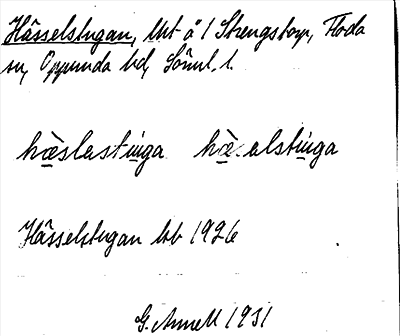 Hässelstugan, lht å 1 Strengstorp, Floda
sn, Oppunda hd, Söml. l.
hæslastinga hæ.alstinga
Hässelstugan lsb 1926
G. Annell 1931